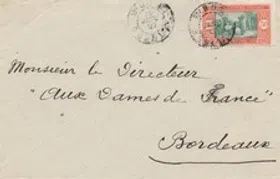 Monsieur le Directeur
"Aux Dames de France"
Bordeaux